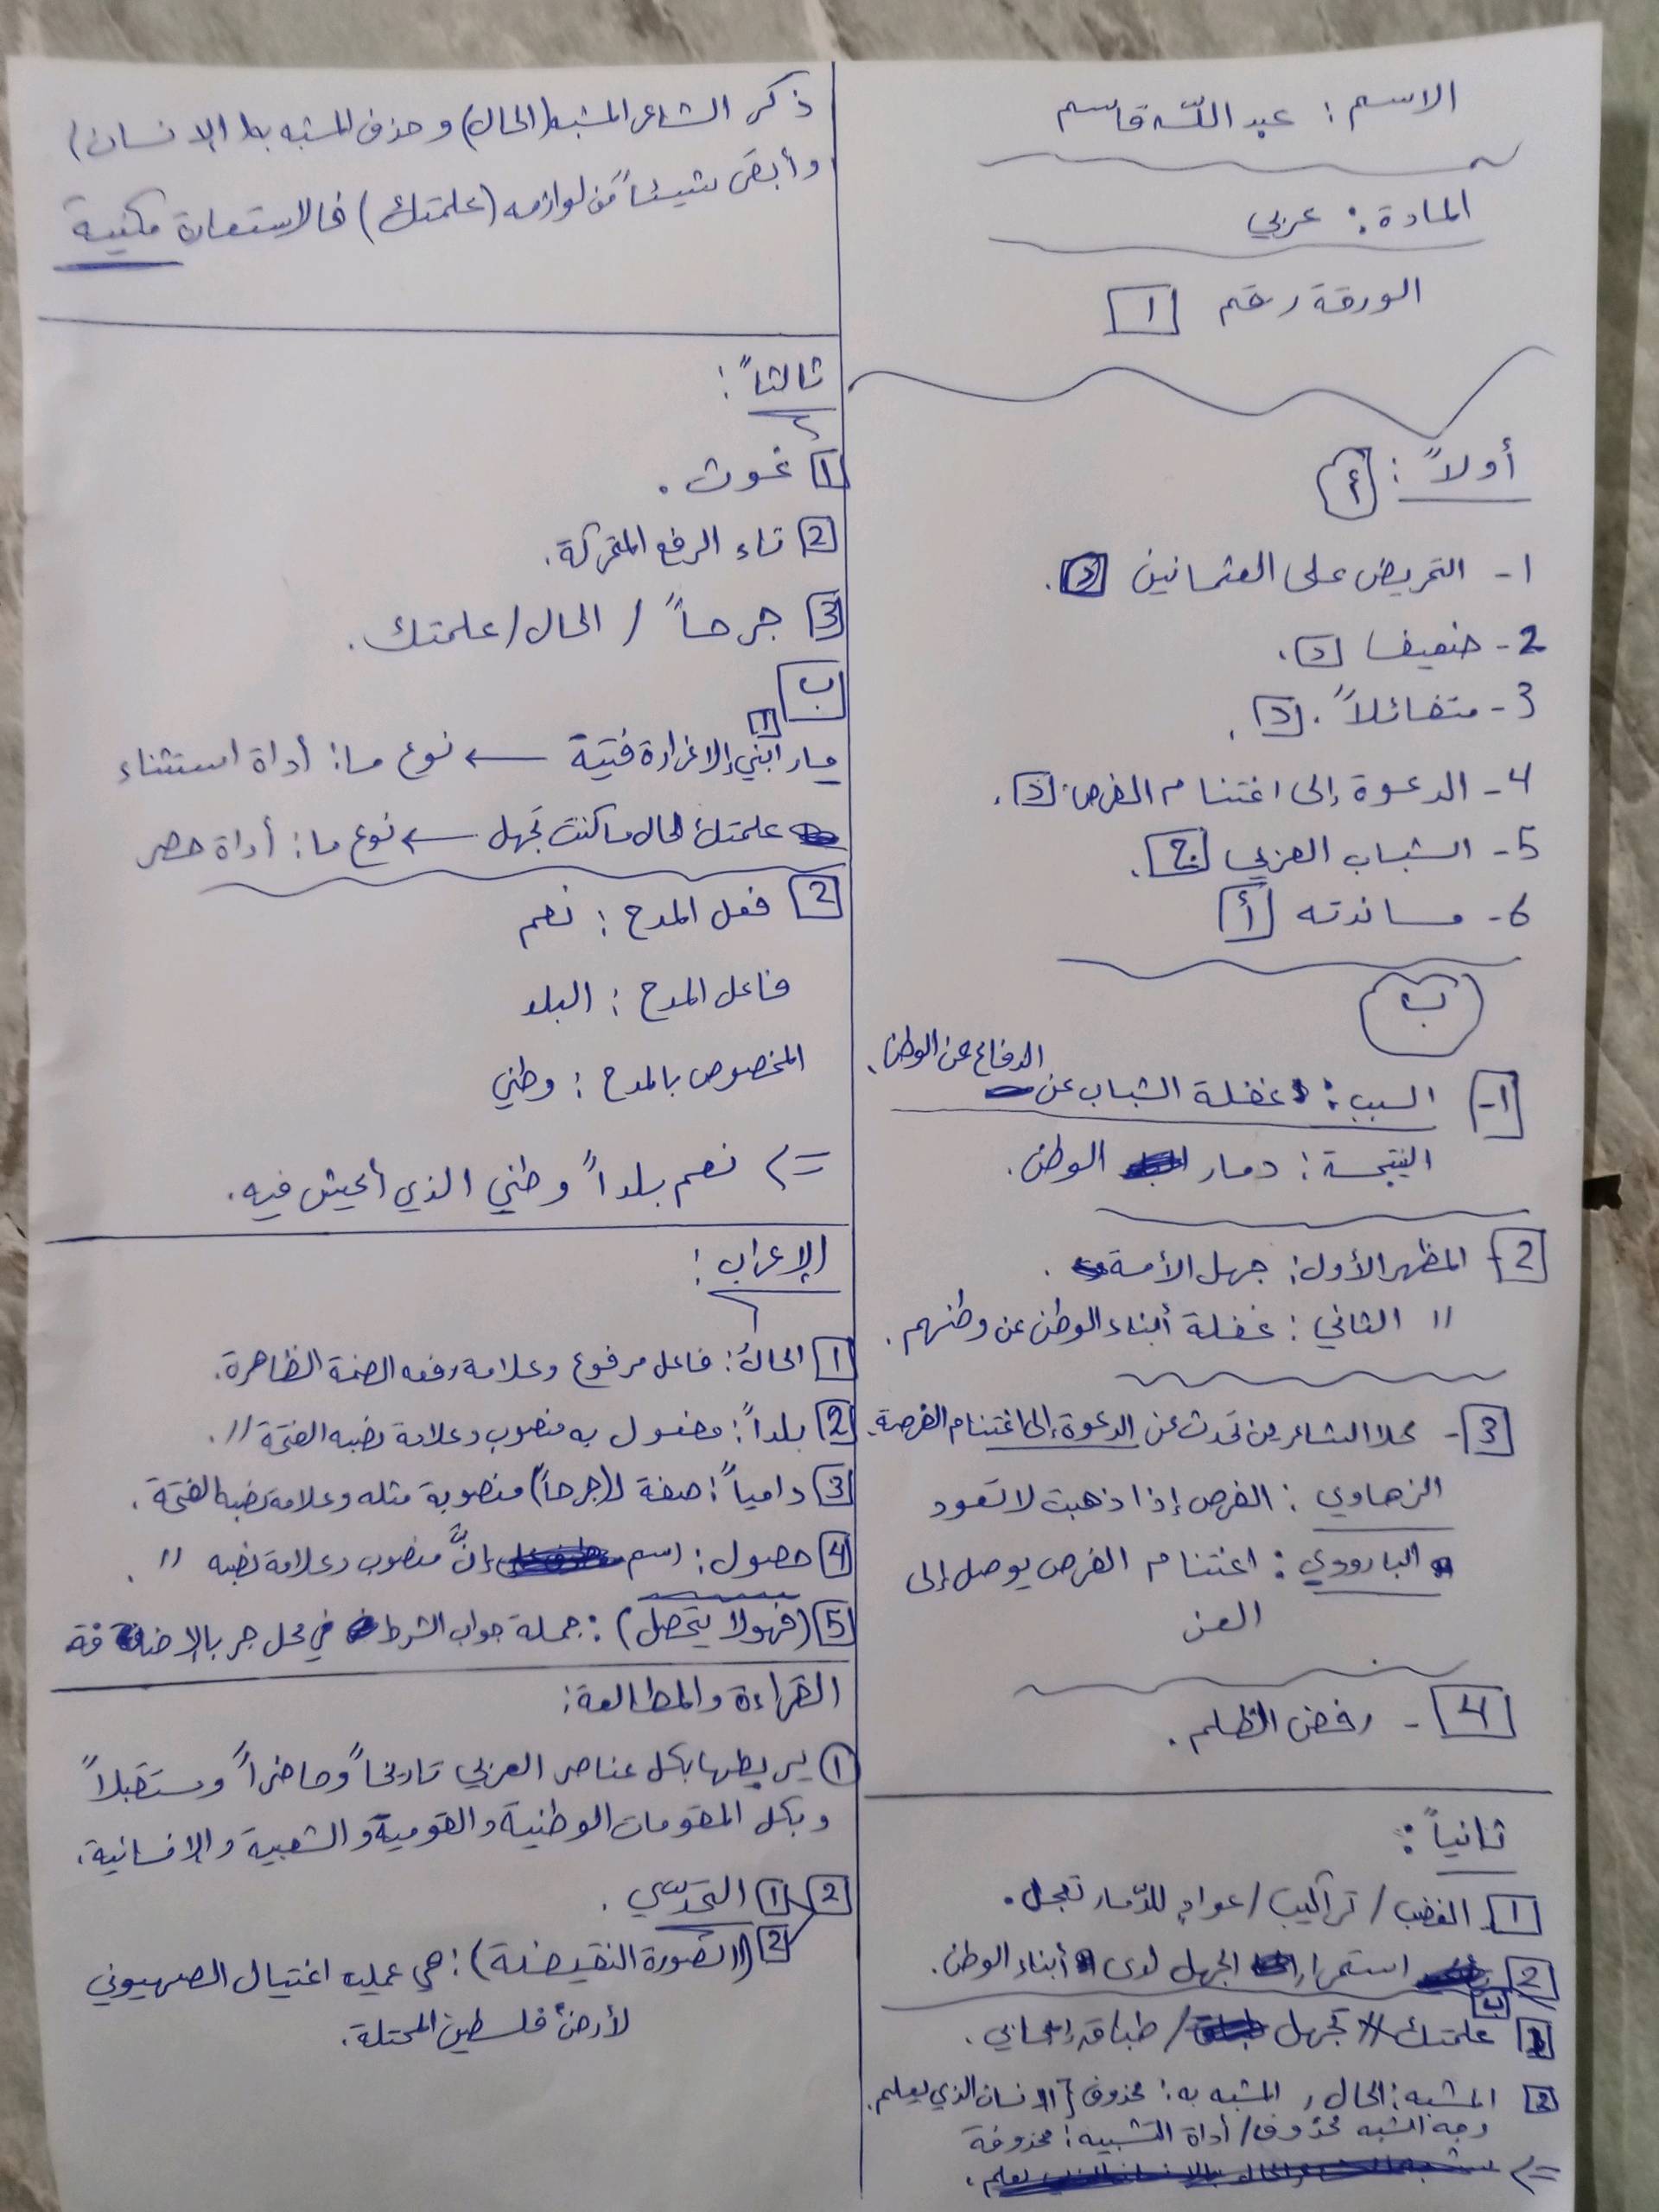 الاسم : عبد اللّه قاسم
المادة : عربي
الورقة رقم 1
أولاً : أ
1- التحريض على العثمانيين د.
2- ضعيفا د.
3- متفائلاً. د.
4- الدعوة إلى اغتنام الفرص. د.
5- الشباب العربي ج.
6- مساندته أ
ب
1- السبب : غفلة الشباب عن الدفاع عن الوطن.
النتيجة : دمار الوطن.
2- المظهر الأول : جهل الأمة.
// الثاني : غفلة أبناء الوطن عن وطنهم.
3- كلا الشاعرين تحدث عن الدعوة إلى اغتنام الفرصة.
الزهاوي : الفرص إذا ذهبت لا تعود
البارودي : اغتنام الفرص يوصل إلى
العز
4- رفض الظلم.
ثانياً :
1 الغضب / تراكيب / عوادٍ للدّمار تعجل.
2 استمرار الجهل لدى أبناء الوطن.
ب
1 علمتك // تجهل / طباق إيجابي.
2 المشبه : الحال , المشبه به : محذوف [الانسان الذي يعلم.
وجه الشبه محذوف / أداة التشبيه : محذوفة
=>
ذكر الشاعر المشبه (الحال) و حذف المشبه به (الإنسان)
وأبقى شيئاً من لوازمه (علمتك) فالاستعارة مكنية
ثالثاً :
1 غوث.
2 تاء الرفع المتحركة.
3 جرحاً / الحال / علمتك.
ب
1
مار ابني إلا غرارة فتية ← نوع ما : أداة استثناء
علمتك الحال ما كنت تجهل ← نوع ما : أداة حصر
2 فعل المدح : نعم
فاعل المدح : البلد
المخصوص بالمدح : وطني
=> نعم بلداً وطني الذي أعيش فيه.
الإعراب :
1 الحالُ : فاعل مرفوع وعلامة رفعه الضمة الظاهرة.
2 بلداً : مفعول به منصوب وعلامة نصبه الفتحة //.
3 دامياً : صفة لـ(جرحاً) منصوبة مثله وعلامة نصبه الفتحة.
4 حصول : اسم إنَّ منصوب وعلامة نصبه //.
5 (فهو لا يتحصل) : جملة جواب الشرط في محل جر بالإضافة
القراءة والمطالعة :
1 يربطها بكل عناصر العربي تاريخاً وحاضراً ومستقبلاً
وبكل المقومات الوطنية والقومية والشعبية والإنسانية.
2 1 التحدّي.
2 (الصورة النقيضة) : هي عملية اغتيال الصهيوني
لأرض فلسطين المحتلة.